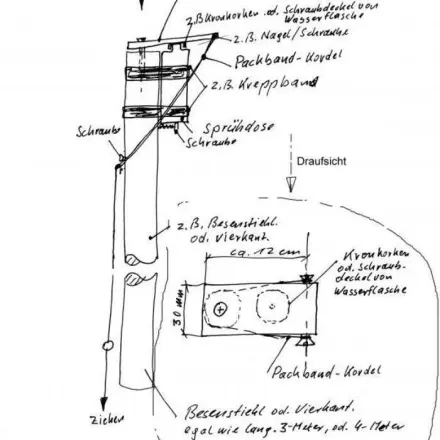 z.B. Kronkorken od. Schraubdeckel von
Wasserflasche
z.B. Nagel/Schraube
Packband-Kordel
z.B. Kreppband
Schraube
Sprühdose
Schraube
Draufsicht
z.B. Besenstiehl
od. Vierkant.
ca. 12 cm
Kronkorken
od. Schraub-
deckel von
Wasserflasche
30 mm
Packband-Kordel
Ziehen
Besenstiehl od. Vierkant.
egal wie lang. 3-Meter, od. 4-Meter